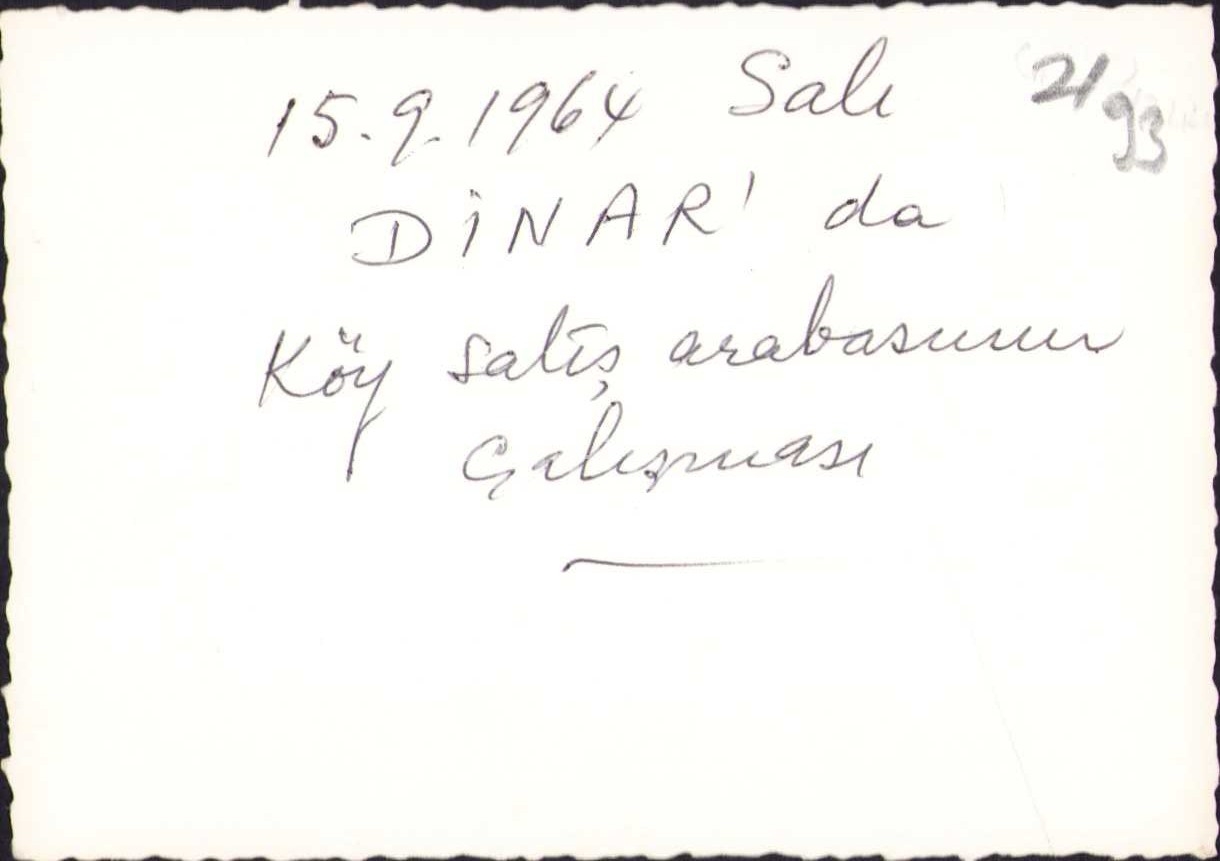 15.9.1964 Salı
21/93
DİNAR' da
Köy satış arabasının
çalışması